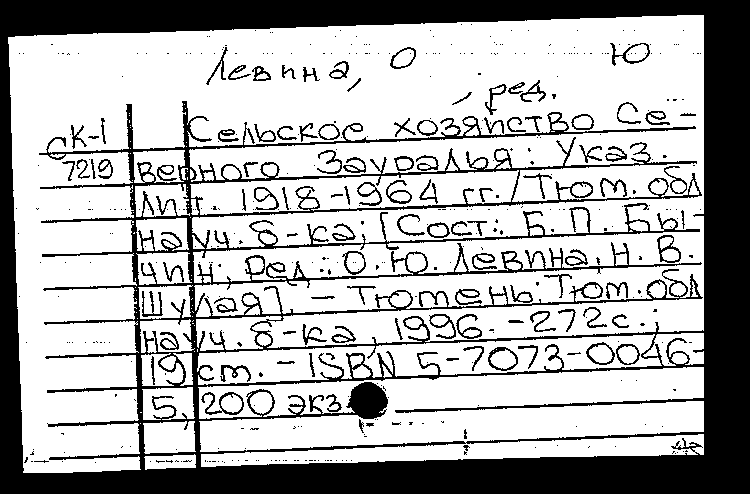 Левина, О Ю
, ред.
СК-1 Сельское хозяйство Се-
7219 верного Зауралья: Указ.
лит. 1918-1964 гг. / Тюм. обл
науч. б-ка; [Сост.: Б. П. Бы-
чин; Ред.: О. Ю. Левина, Н. В.
Шулая]. - Тюмень: Тюм. обл
науч. б-ка, 1996. - 272 с.;
19 cm. - ISBN 5-7073-0046-
5, 200 экз